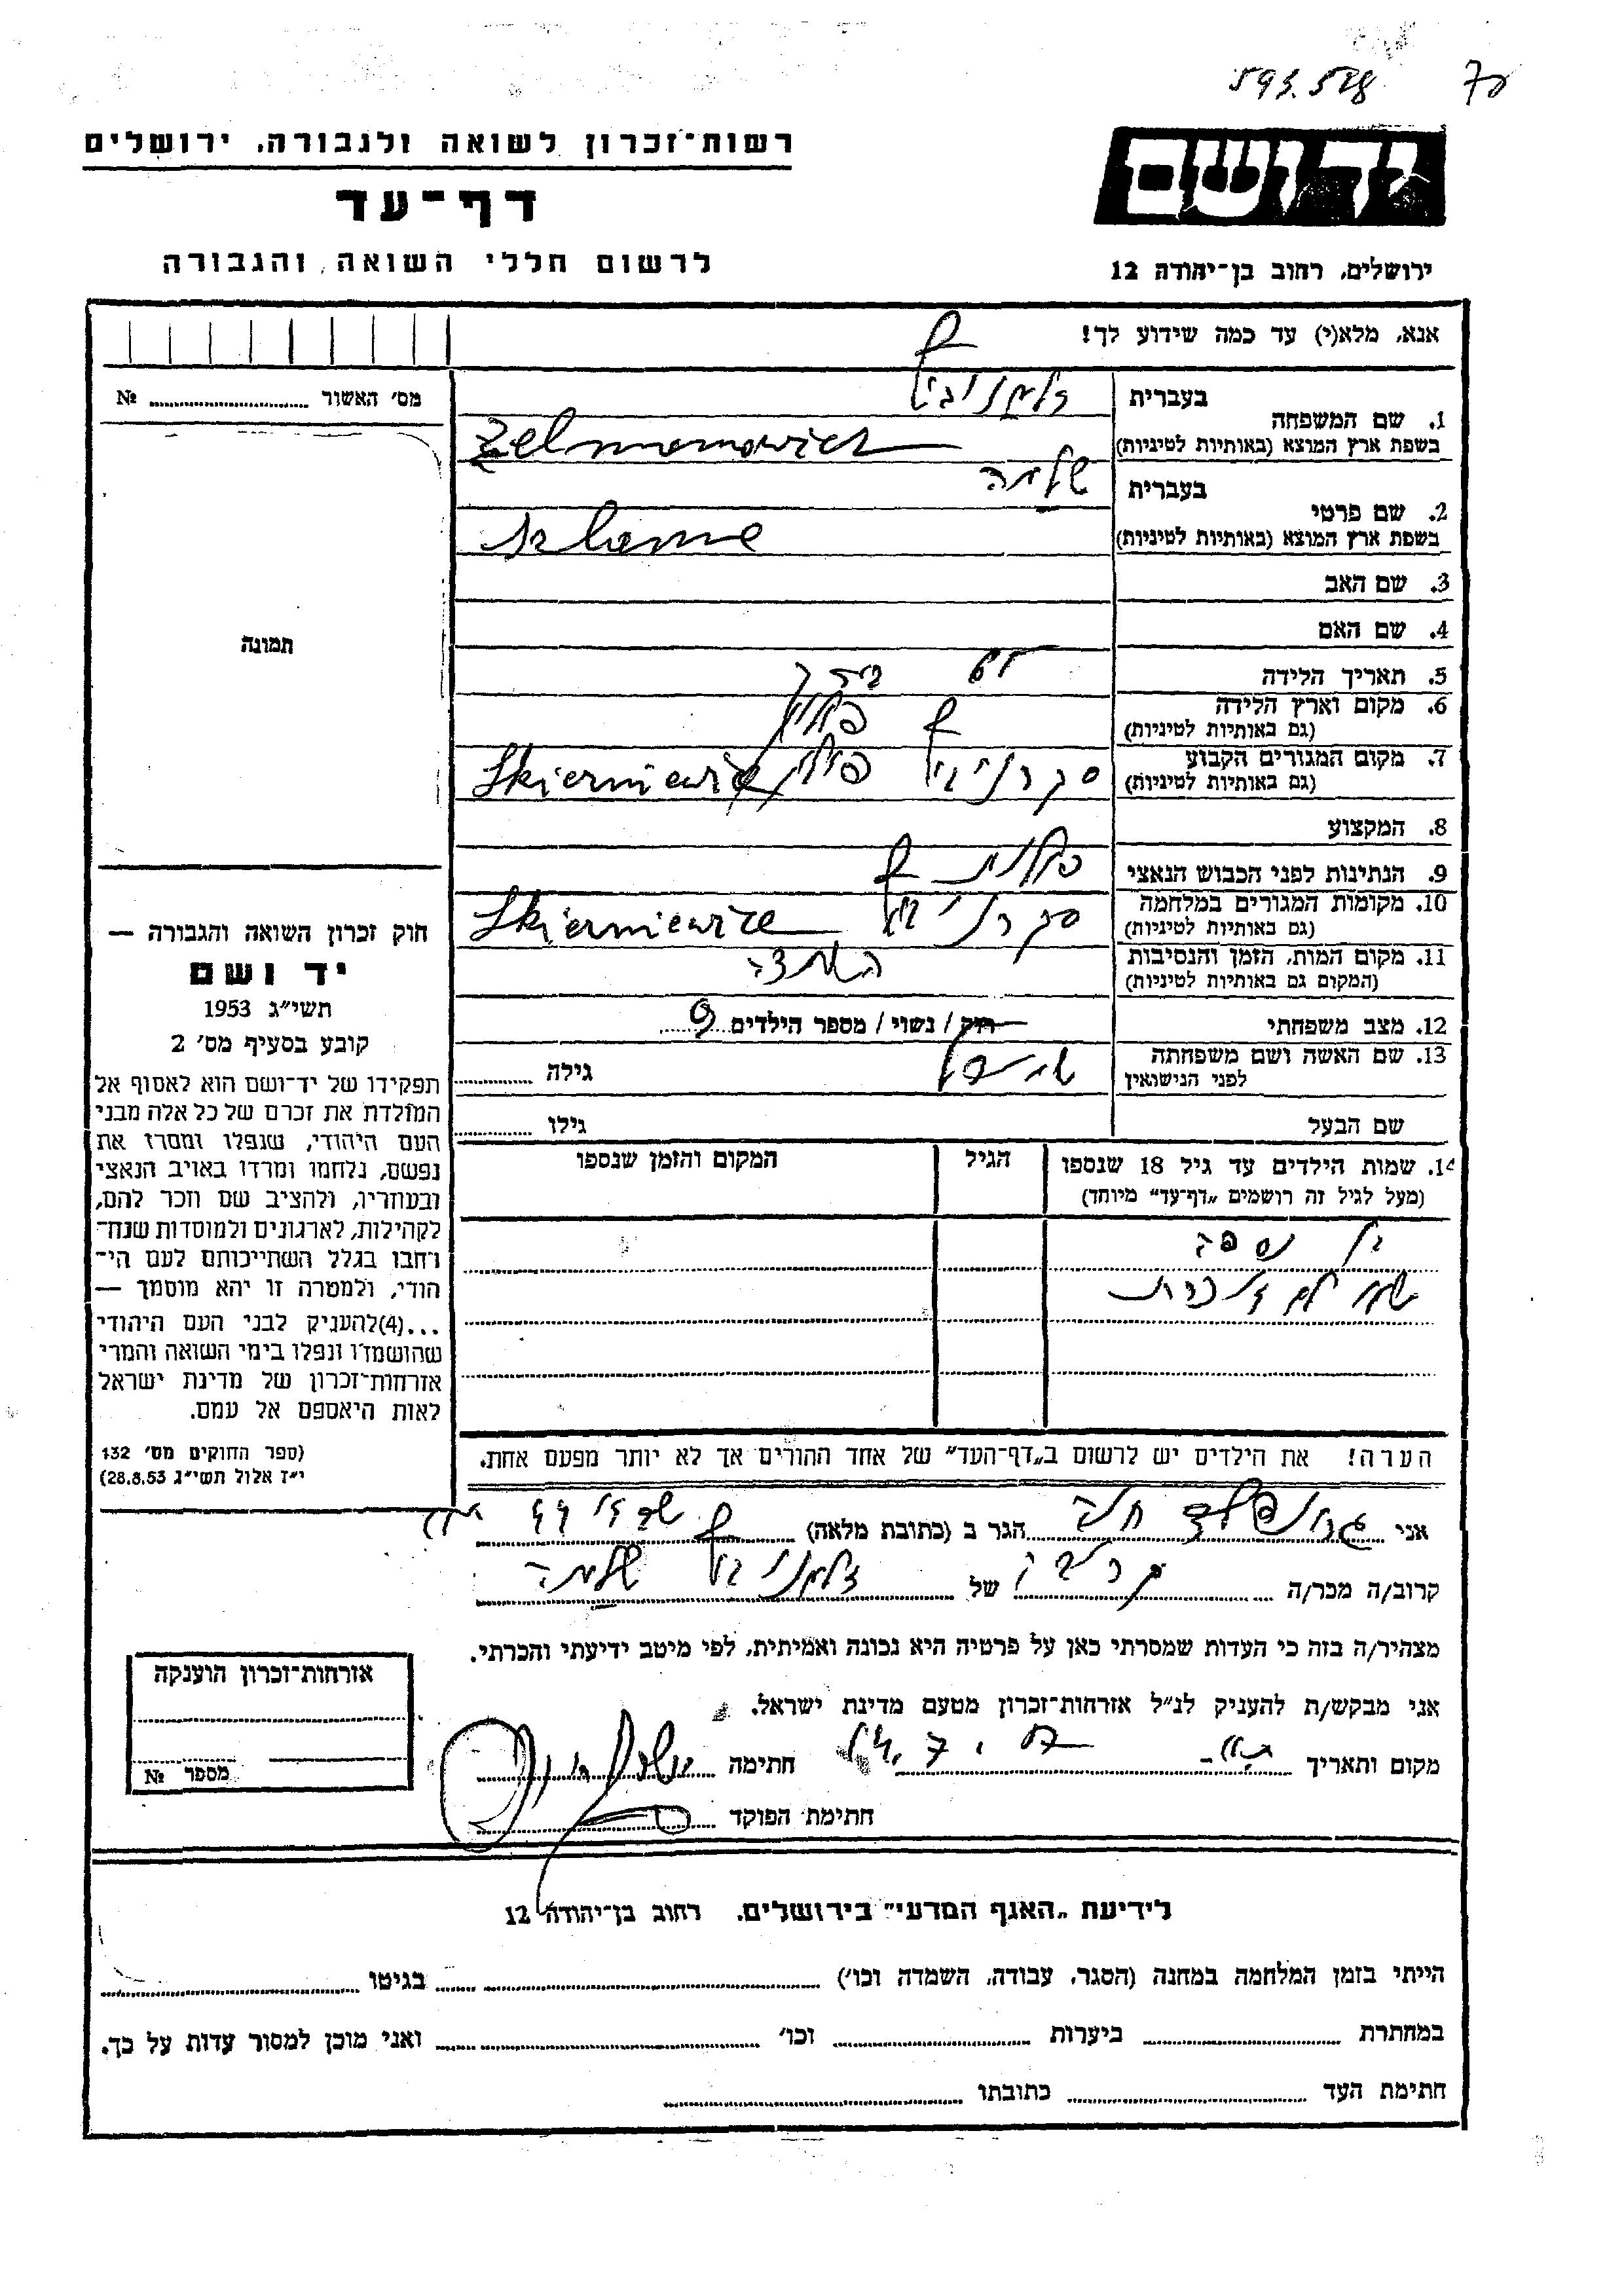 593.528 70
רשות־זכרון לשואה ולגבורה, ירושלים
דף־עד
לרשום חללי השואה והגבורה
יד ושם
ירושלים, רחוב בן־יהודה 12
אנא, מלא(י) עד כמה שידוע לך!
מס׳ האשור № 
תמונה
1. שם המשפחה
בעברית זלמנוביץ
בשפת ארץ המוצא (באותיות לטיניות) Zelmanowicz
2. שם פרטי
בעברית שלמה
בשפת ארץ המוצא (באותיות לטיניות) Szlama
3. שם האב
4. שם האם
5. תאריך הלידה
6. מקום וארץ הלידה
(גם באותיות לטיניות) פולין
7. מקום המגורים הקבוע
(גם באותיות לטיניות) סקרניביץ פולין Skierniewice
8. המקצוע
9. הנתינות לפני הכבוש הנאצי פולנית
10. מקומות המגורים במלחמה
(גם באותיות לטיניות) סקרניביץ Skierniewice
11. מקום המות, הזמן והנסיבות
(המקום גם באותיות לטיניות) השמדה
12. מצב משפחתי רוק / נשוי / מספר הילדים 9
13. שם האשה ושם משפחתה
לפני הנישואין גילה
שם הבעל גילו
14. שמות הילדים עד גיל 18 שנספו הגיל המקום והזמן שנספו
(מעל לגיל זה רושמים „דף־עד״ מיוחד)
הערה! את הילדים יש לרשום ב„דף־העד״ של אחד ההורים אך לא יותר מפעם אחת.
חוק זכרון השואה והגבורה —
יד ושם
תשי״ג 1953
קובע בסעיף מס׳ 2
תפקידו של יד־ושם הוא לאסוף אל
המולדת את זכרם של כל אלה מבני
העם היהודי, שנפלו ומסרו את
נפשם, נלחמו ומרדו באויב הנאצי
ובעוזריו, ולהציב שם וזכר להם,
לקהילות, לארגונים ולמוסדות שנח־
רחבו בגלל השתייכותם לעם הי־
הודי, ולמטרה זו יהא מוסמך —
...(4) להעניק לבני העם היהודי
שהושמדו ונפלו בימי השואה והמרי
אזרחות־זכרון של מדינת ישראל
לאות היאספם אל עמם.
(ספר החוקים מס׳ 132
י״ז אלול תשי״ג 28.8.53)
אני גרינפלד חיה הגר ב (כתובת מלאה)
קרוב/ה מכר/ה של זלמנוביץ שלמה
מצהיר/ה בזה כי העדות שמסרתי כאן על פרטיה היא נכונה ואמיתית, לפי מיטב ידיעתי והכרתי.
אני מבקש/ת להעניק לנ״ל אזרחות־זכרון מטעם מדינת ישראל.
מקום ותאריך חתימה
חתימת הפוקד
אזרחות־זכרון הוענקה
מספר №
לידיעת „האגף המדעי״ בירושלים, רחוב בן־יהודה 12
הייתי בזמן המלחמה במחנה (הסגר, עבודה, השמדה וכו׳) בגיטו
במחתרת ביערות וכו׳ ואני מוכן למסור עדות על כך.
חתימת העד כתובתו